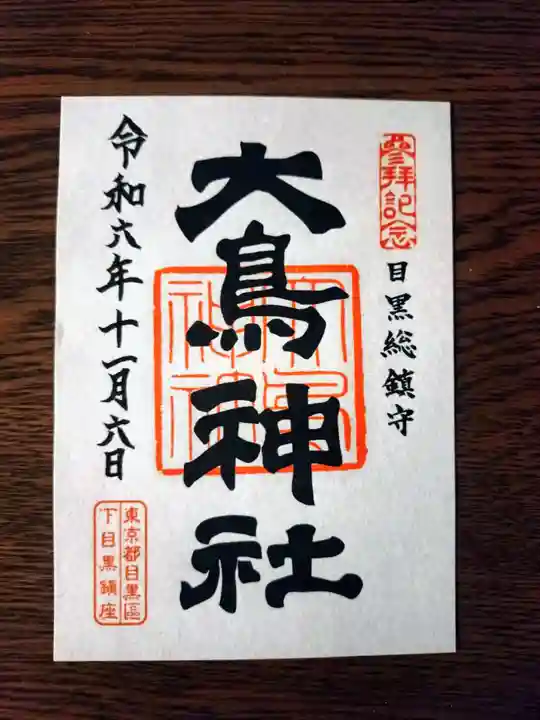 參拝記念
目黒総鎮守
大鳥神社
大鳥神社
令和六年十一月六日
東京都目黒區
下目黒鎮座